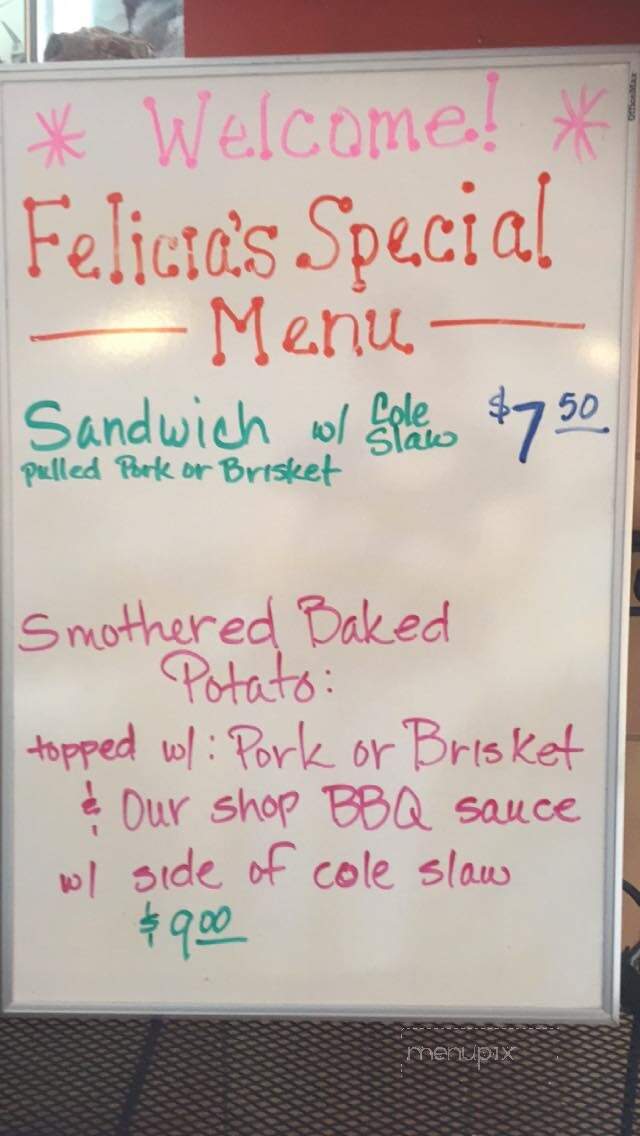 * Welcome! *
Felicia's Special
— Menu —
Sandwich w/ Cole Slaw $7.50
pulled Pork or Brisket
Smothered Baked
Potato:
topped w/: Pork or Brisket
& Our shop BBQ sauce
w/ side of cole slaw
$9.00
menupix
OfficeMax